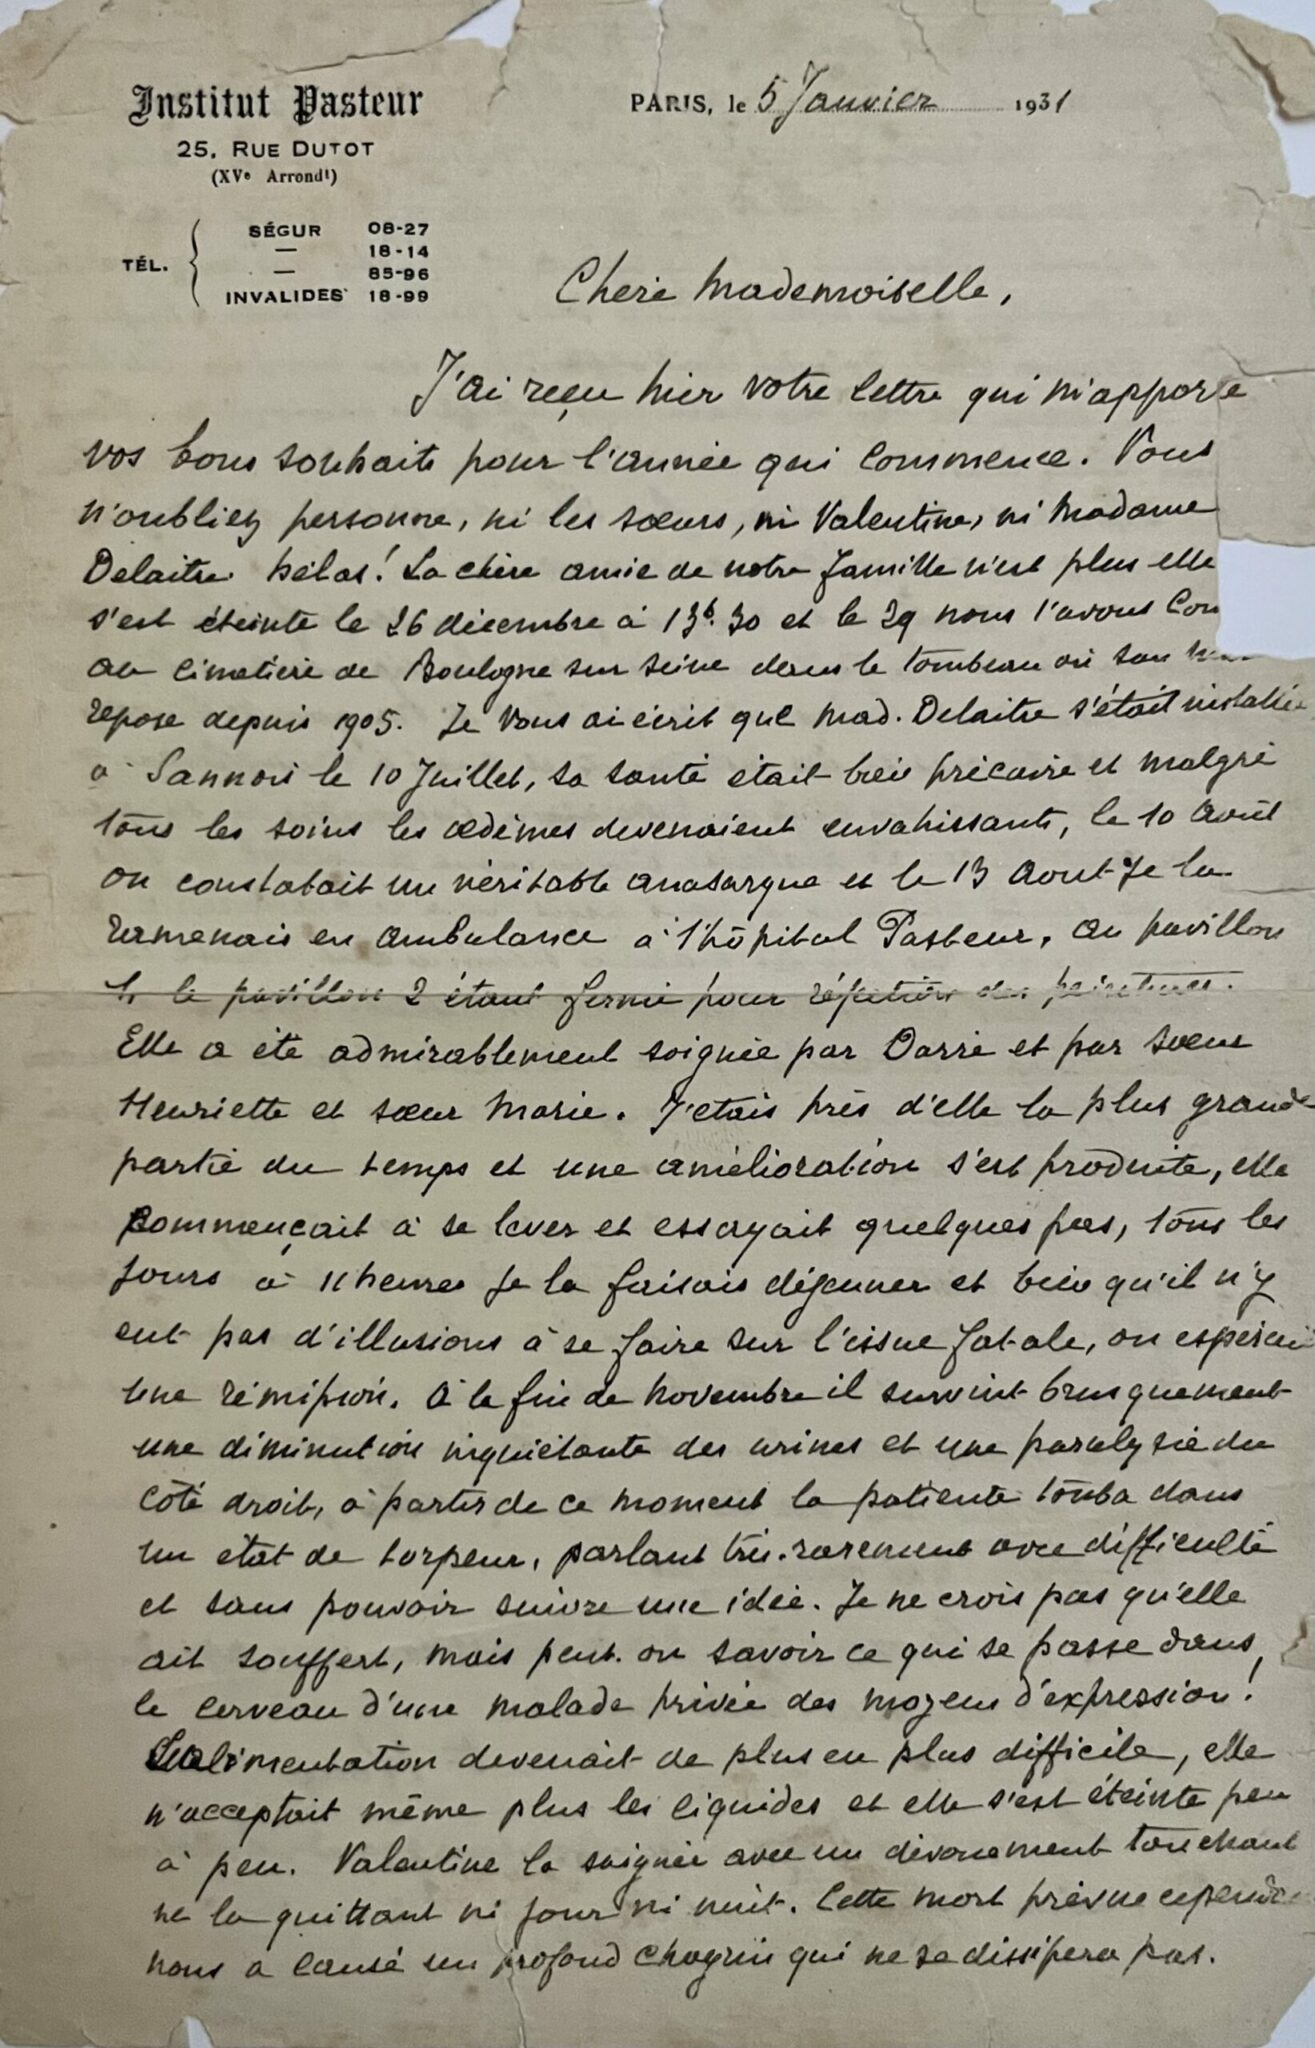 Institut Pasteur
25, RUE DUTOT
(XVe Arrondt)
PARIS, le 5 Janvier 1931
TÉL.
SÉGUR 08-27
— 18-14
— 85-96
INVALIDES 18-99
Chère Mademoiselle,
J'ai reçu hier votre lettre qui m'apporte
vos bons souhaits pour l'année qui commence. Vous
n'oubliez personne, ni les sœurs, ni Valentine, ni Madame
Delaitre. hélas! La chère amie de notre famille n'est plus elle
s'est éteinte le 26 décembre à 13h.30 et le 29 nous l'avons
au cimetière de Boulogne sur Seine dans le tombeau où son
repose depuis 1905. Je vous ai écrit que Mad. Delaitre s'était installée
à Sannois le 10 Juillet, sa santé était bien précaire et malgré
tous les soins les œdèmes devenaient envahissants, le 10 Août
on constatait un véritable anasarque et le 13 Aout Je la
ramenais en ambulance à l'hôpital Pasteur, au pavillon
1, le pavillon 2 étant fermé pour réfection des peintures.
Elle a été admirablement soignée par Darré et par sœur
Henriette et sœur Marie. J'étais près d'elle la plus grande
partie du temps et une amélioration s'est produite, elle
commençait à se lever et essayait quelques pas, tous les
jours à 11 heures Je la faisais déjeuner et bien qu'il n'y
eut pas d'illusions à se faire sur l'issue fatale, on espérait
une rémission. A la fin de Novembre il survint brusquement
une diminution inquiétante des urines et une paralysie du
côté droit, à partir de ce moment la patiente tomba dans
un état de torpeur, parlant très rarement avec difficulté
et sans pouvoir suivre une idée. Je ne crois pas qu'elle
ait souffert, mais peut-on savoir ce qui se passe dans
le cerveau d'une malade privée des moyens d'expression!
L'alimentation devenait de plus en plus difficile, elle
n'acceptait même plus les liquides et elle s'est éteinte peu
à peu. Valentine la soignée avec un dévouement touchant
ne la quittant ni jour ni nuit. Cette mort prévue
nous a causé un profond chagrin qui ne se dissipera pas.